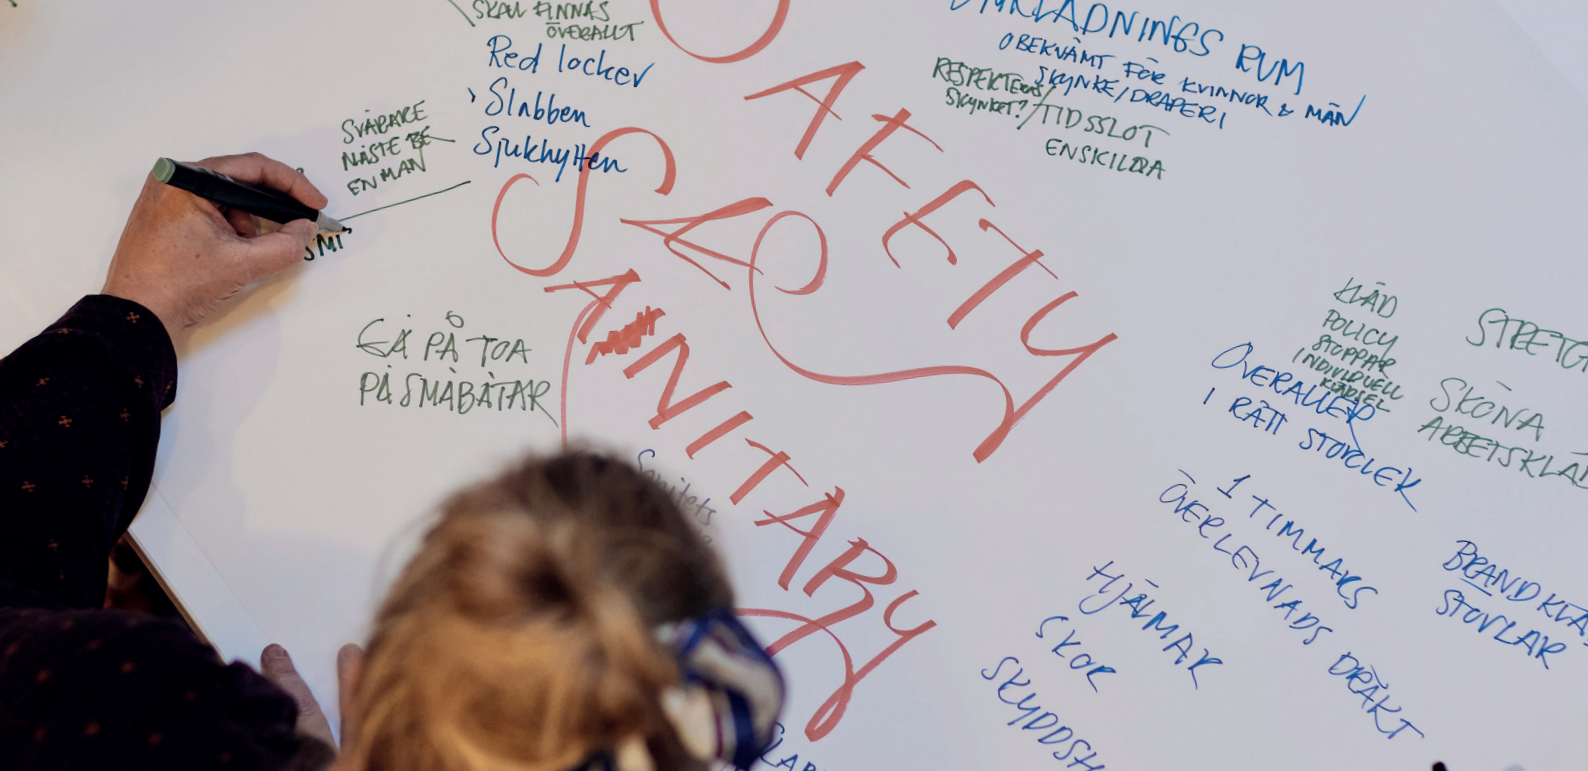 SKALL FINNAS
ÖVERALLT
Red locker
Slabben
Sjukhytten
SVÅRARE
NÄSTE BE
EN MAN
SMI
GÅ PÅ TOA
PÅ SMÅBÅTAR
SAFETY
&
SANITARY
Sanitets
OMKLÄDNINGS RUM
OBEKVÄMT FÖR KVINNOR & MÄN
SKYNKE/DRAPERI
RESPEKTERAS
SKYNKET?/TIDSSLOT
ENSKILDA
KLÄD
POLICY
STOPPAR
INDIVIDUELL
KLÄDSEL
OVERALLER
I RÄTT STORLEK
STRETC
SKÖNA
ARBETSKLÄ
1 TIMMARS
ÖVERLEVNADS DRÄKT
BRANDKLÄ
STÖVLAR
HJÄLMAR
SKOR
SKYDDSH